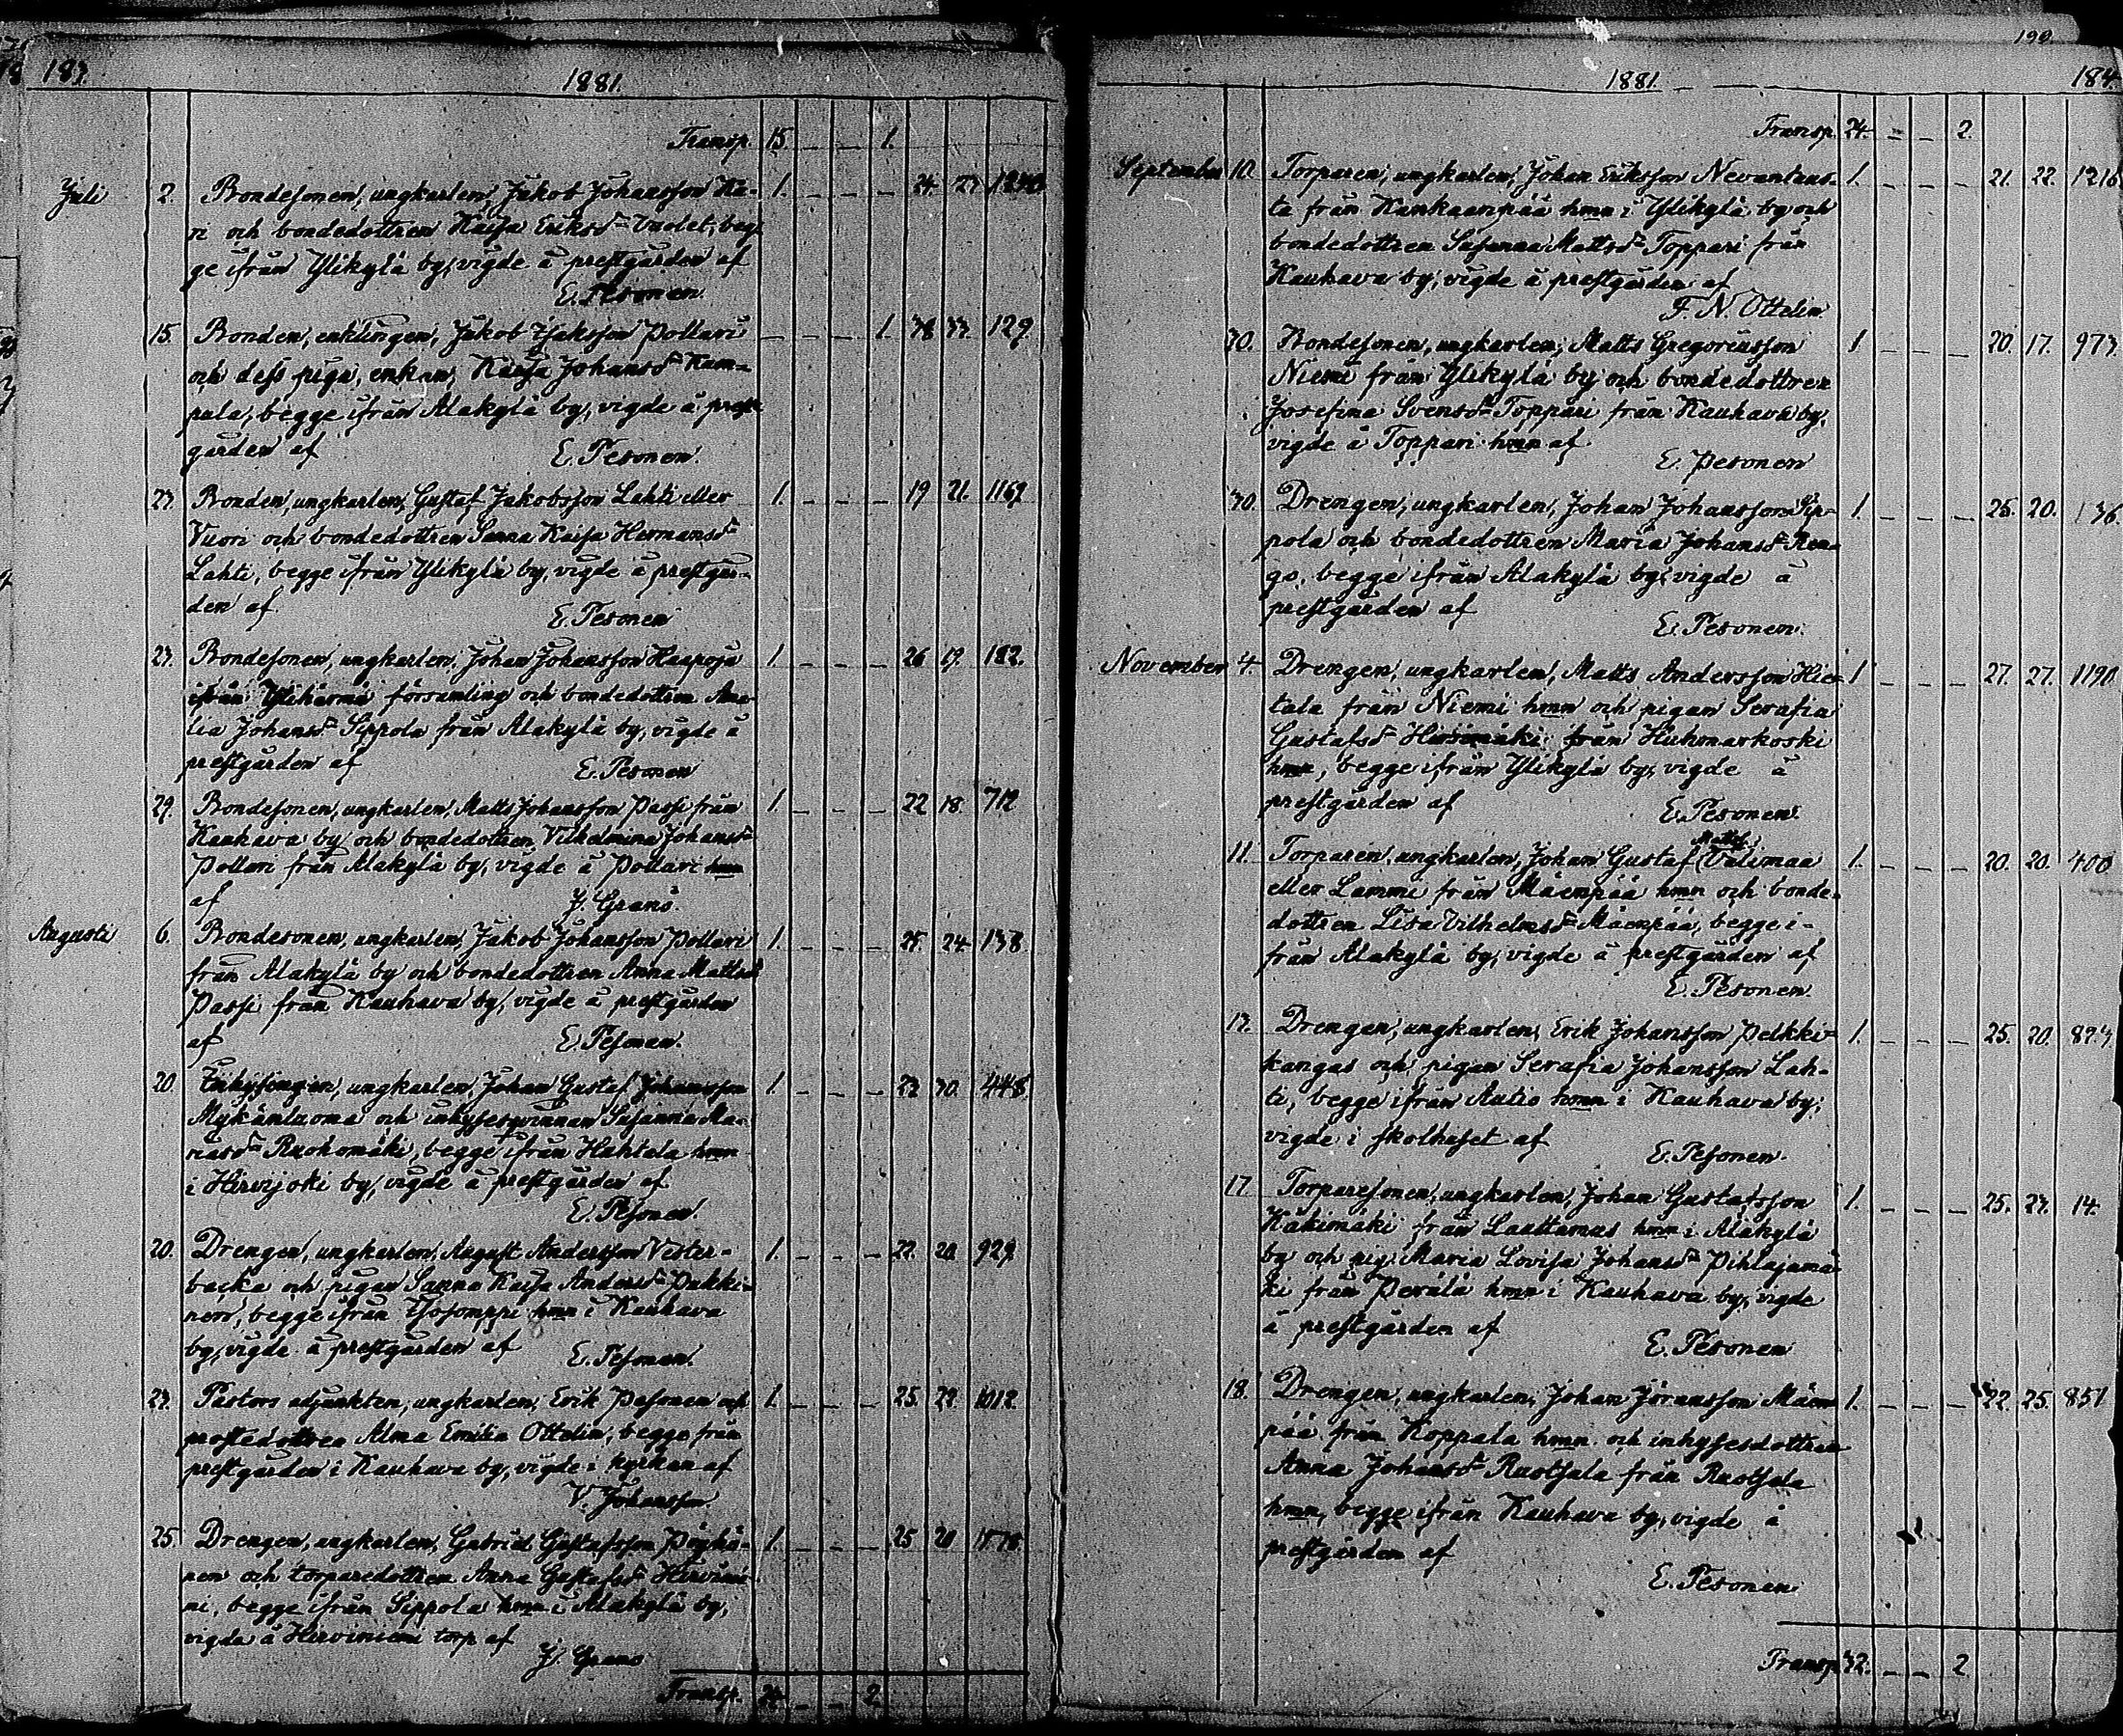 183. 1881.
Transp. 15. _ _ _ 1.
Juli 2. Bondesonen, ungkarlen, Jakob Johansson Ka- 1. _ _ _ _ 24. 23.
ri och bondedottren Kaisa Eriksdr Vuolet, beg-
ge ifrån Ylikylä by, vigde å prestgården af
E. Pesonen.
15. Bonden, enklingen, Jakob Isaksson Pollari _ _ _ _ 1. 38 33. 129.
och dess piga, enkan, Kaisa Johansdr Kam-
pula, begge ifrån Alakylä by, vigde å prest-
gården af E. Pesonen.
23. Bonden, ungkarlen, Gustaf Jakobsson Lahti eller 1. _ _ _ _ 19 21. 1169.
Vuori och bondedottren Sanna Kaisa Hermansdr
Lahti, begge ifrån Ylikylä by, vigde å prestgår-
den af E. Pesonen
23. Bondesonen, ungkarlen, Johan Johansson Haapoja 1. _ _ _ _ 26 19. 182.
ifrån Ylihärmä församling och bondedottren Ama-
lia Johansdr Sippola från Alakylä by, vigde å
prestgården af E. Pesonen
29. Bondesonen, ungkarlen, Matts Johansson Passi från 1. _ _ _ _ 22 18. 712
Kauhava by och bondedottren Vilhelmina Johansdr
Pollari från Alakylä by, vigde å Pollari hmn
af J. Granö.
Augusti 6. Bondesonen, ungkarlen, Jakob Johansson Pollari 1. _ _ _ _ 25. 24. 138
från Alakylä by och bondedottren Anna Mattsdr
Passi från Kauhava by, vigde å prestgården
af E. Pesonen.
20. Inhysingen, ungkarlen, Johan Gustaf Johansson 1. _ _ _ _ 23 30. 448.
Mykänluoma och inhysesqvinnan Susanna Ma-
riasdr Ruohomäki, begge ifrån Hahtala hmn
i Hirvijoki by, vigde å prestgården af
E. Pesonen.
20. Drengen, ungkarlen, August Andersson Vester- 1. _ _ _ _ 22. 20. 929.
backa och pigan Sanna Kaisa Andersdr Pukki-
nen, begge ifrån Isosomppi hmn i Kauhava
by, vigde å prestgården af E. Pesonen.
23. Pastors adjunkten, ungkarlen, Erik Pesonen och 1. _ _ _ _ 25. 22. 1012.
prostedottren Alma Emilia Ottelin, begge från
prestgården i Kauhava by, vigde i kyrkan af
V. Johansson.
25. Drengen, ungkarlen, Gabriel Gustafsson Pöyhö- 1. _ _ _ _ 25 20
nen och torparedottren Anna Gustafsdr Hirvinie-
mi, begge ifrån Sippola hmn i Alakylä by,
vigda å Hirviniemi torp af
J. Granö
Transp. 24. _ _ _ 2.
190.
1881. 184.
Transp. 24. _ _ _ 2.
September 10. Torparen, ungkarlen, Johan Eriksson Nevantaus- 1. _ _ _ _ 21. 22. 1216
ta från Kankaanpää hmn i Ylikylä by och
bondedottren Susanna Mattsdr Toppari från
Kauhava by, vigde å prestgården af
F. N. Ottelin.
30. Bondesonen, ungkarlen, Matts Gregoriusson 1 _ _ _ _ 20. 17. 973.
Niemi från Ylikylä by och bondedottren
Josefina Svensdr Toppari från Kauhava by,
vigde å Toppari hmn af
E. Pesonen
30. Drengen, ungkarlen, Johan Johansson Sip- 1. _ _ _ _ 25. 20. 136
pola och bondedottren Maria Johansdr Ren-
go, begge ifrån Alakylä by, vigde å
prestgården af
E. Pesonen.
November 4. Drengen, ungkarlen, Matts Andersson Hie- 1 _ _ _ _ 27. 27. 1190.
tala från Niemi hmn och pigan Serafia
Gustafsdr från Huhmarkoski
hmn, begge ifrån Ylikylä by, vigde å
prestgården af E. Pesonen.
11. Torparen, ungkarlen, Johan Gustaf Mattss. Välimaa 1. _ _ _ _ 20. 20. 400
eller Lammi från Mäenpää hmn och bonde-
dottren Lisa Vilhelmsdr Mäenpää, begge i-
från Alakylä by, vigde å prestgården af
E. Pesonen.
13. Drengen, ungkarlen, Erik Johansson Pelkki- 1. _ _ _ _ 25. 20. 823.
kangas och pigan Serafia Johansson Lah-
ti, begge ifrån Autio hmn i Kauhava by,
vigde i skolhuset af
E. Pesonen.
17. Torparesonen, ungkarlen, Johan Gustafsson 1. _ _ _ _ 25. 23. 14.
Käkimäki från Laattamus hmn i Alakylä
by och pig. Maria Lovisa Johansdr Pihlajamä-
ki från Perälä hmn i Kauhava by, vigde
å prestgården af
E. Pesonen
18. Drengen, ungkarlen, Johan Jöransson Mäen- 1. _ _ _ _ 22. 25. 851
pää från Koppala hmn och inhysesdottren
Anna Johansdr Ruotsala från Ruotsala
hmn, begge ifrån Kauhava by, vigde å
prestgården af
E. Pesonen
Transp. 32. _ _ _ 2